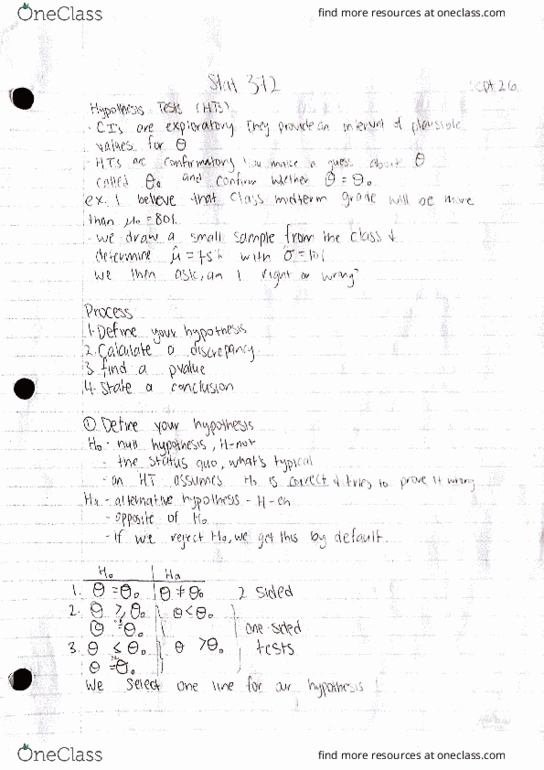 OneClass
find more resources at oneclass.com
Stat 372
Sept. 26
Hypothesis Tests (HTs)
· CIs are exploratory They provide an interval of plausible
values for θ
· HTs are confirmatory You make a guess about θ
called θ₀ and confirm whether θ = θ₀
ex. I believe that class midterm grade will be more
than μ₀ = 80%
- we draw a small sample from the class ↓
determine μ̂ = 75% with σ = 10%
we then ask, am I right or wrong?
Process
1. Define your hypothesis
2. Calculate a discrepancy
3. find a pvalue
4. State a conclusion
① Define your hypothesis
H₀ - null hypothesis, H-not
- the status quo, what's typical
- an HT assumes H₀ is correct & tries to prove it wrong
Ha - alternative hypothesis - H-eh
- opposite of H₀
- if we reject H₀, we get this by default.
H₀ Ha
1. θ = θ₀ θ ≠ θ₀ 2 sided
2. θ ≥ θ₀ θ < θ₀
θ = θ₀ one-sided
3. θ ≤ θ₀ θ > θ₀ tests
θ = θ₀
We select one line for our hypothesis
OneClass
find more resources at oneclass.com